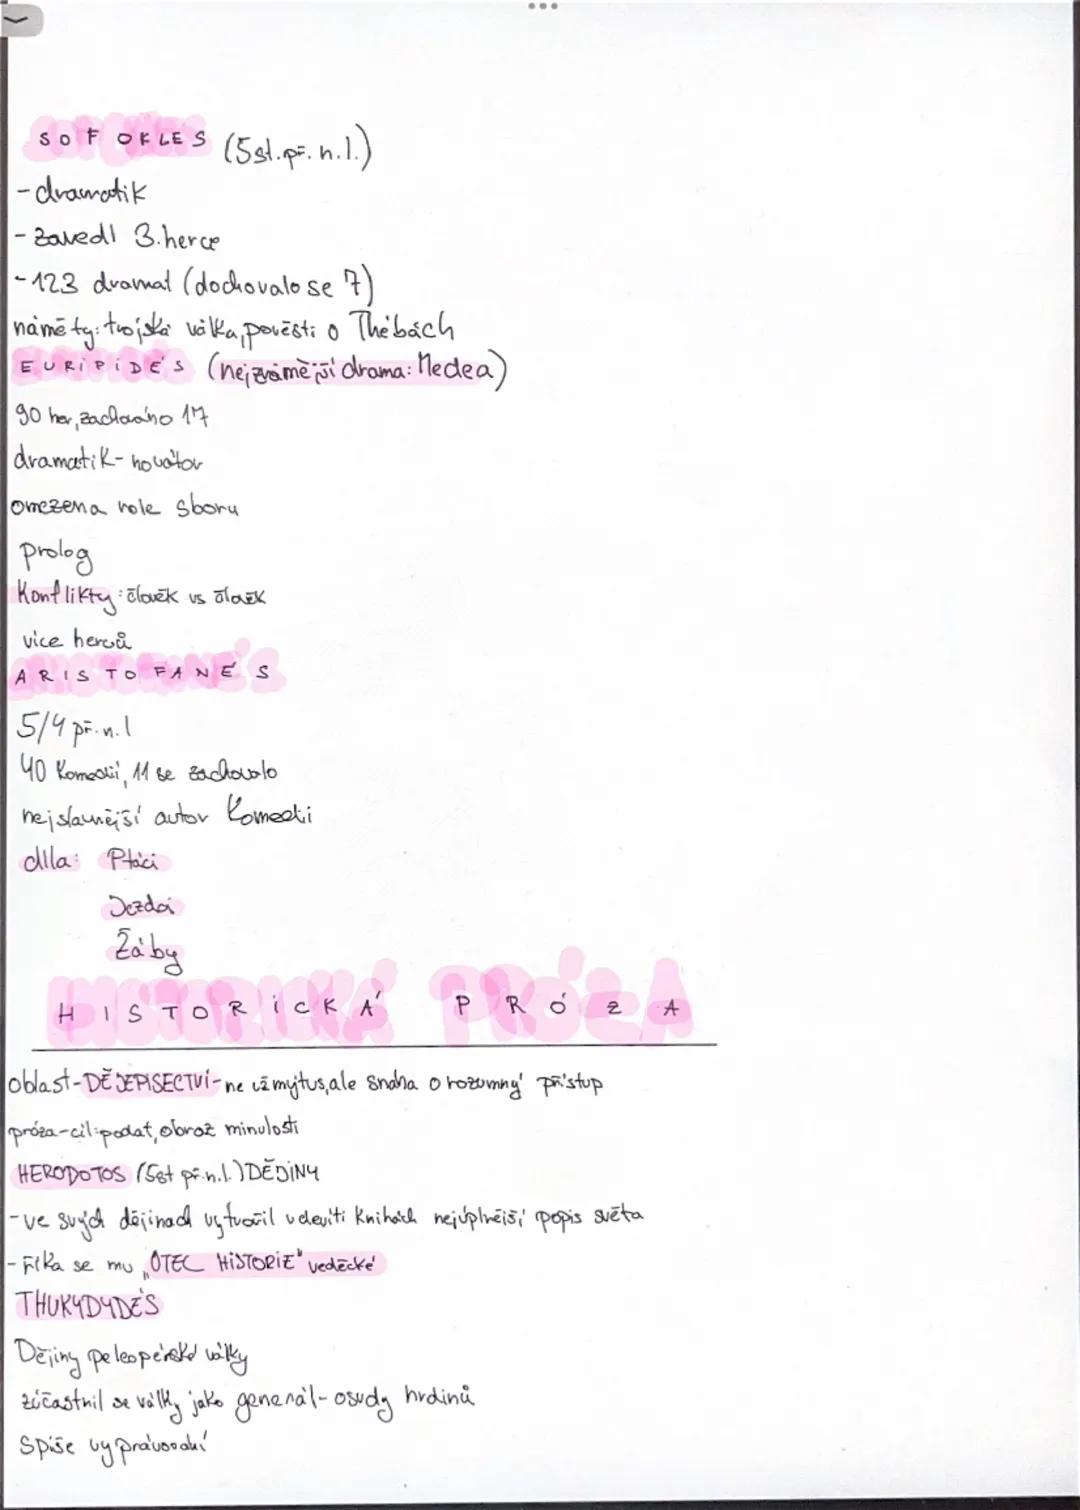 SOFOKLES (5st.př.n.l.)
- dramatik
- zavedl 3.herce
- 123 dramat (dochovalo se 7)
náměty: trojská válka, pověsti o Thébách
EURIPIDÉS (nejznámější drama: Medea)
90 her, zachováno 17
dramatik - novátor
omezena role sboru
prolog
Konflikty: člověk vs člověk
více herců
ARISTOFANÉS
5/4 př.n.l
40 komedií, 11 se zachovalo
nejslavnější autor komedií
díla: Ptáci
Jezdci
Žáby
HISTORICKÁ PRÓZA
oblast - DĚJEPISECTVÍ - ne už mýtus, ale snaha o rozumný přístup
próza - cíl: podat obraz minulosti
HERODOTOS (5st př.n.l.) DĚJINY
- ve svých dějinách vytvořil v devíti knihách nejúplnější popis světa
- říká se mu „OTEC HISTORIE" vědecké
THUKYDYDÉS
Dějiny války
zúčastnil se války jako generál - osudy hrdinů
spíše vypravování